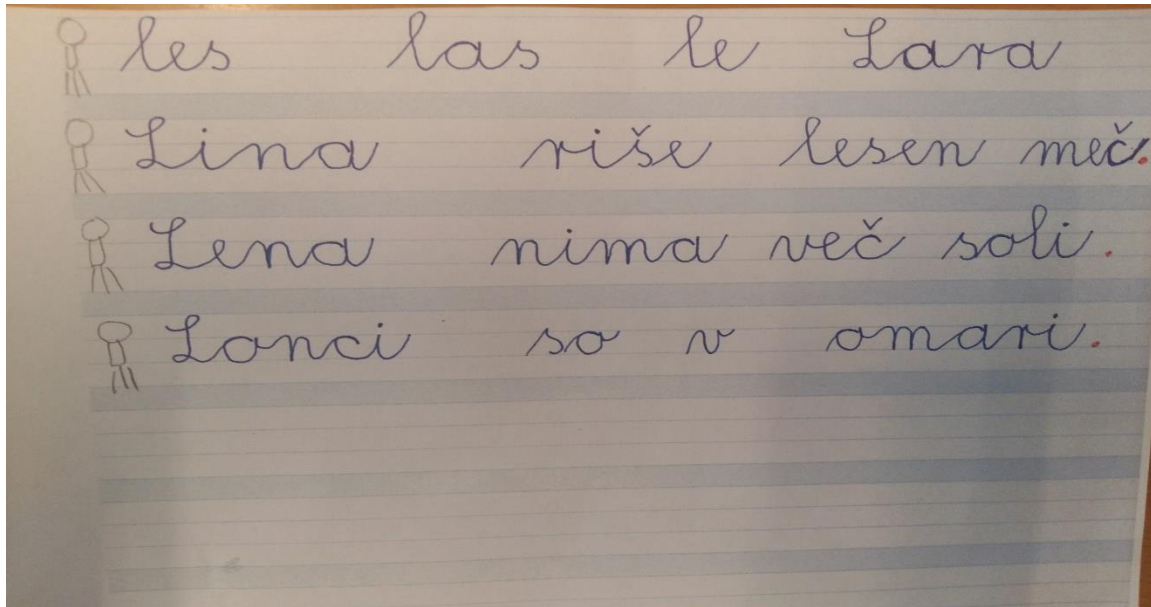 les las le Lara
Lina riše lesen meč.
Lena nima več soli.
Lonci so v omari.